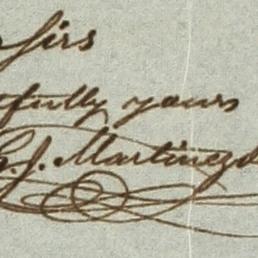 sirs
tfully yours
G. J. Martinez d